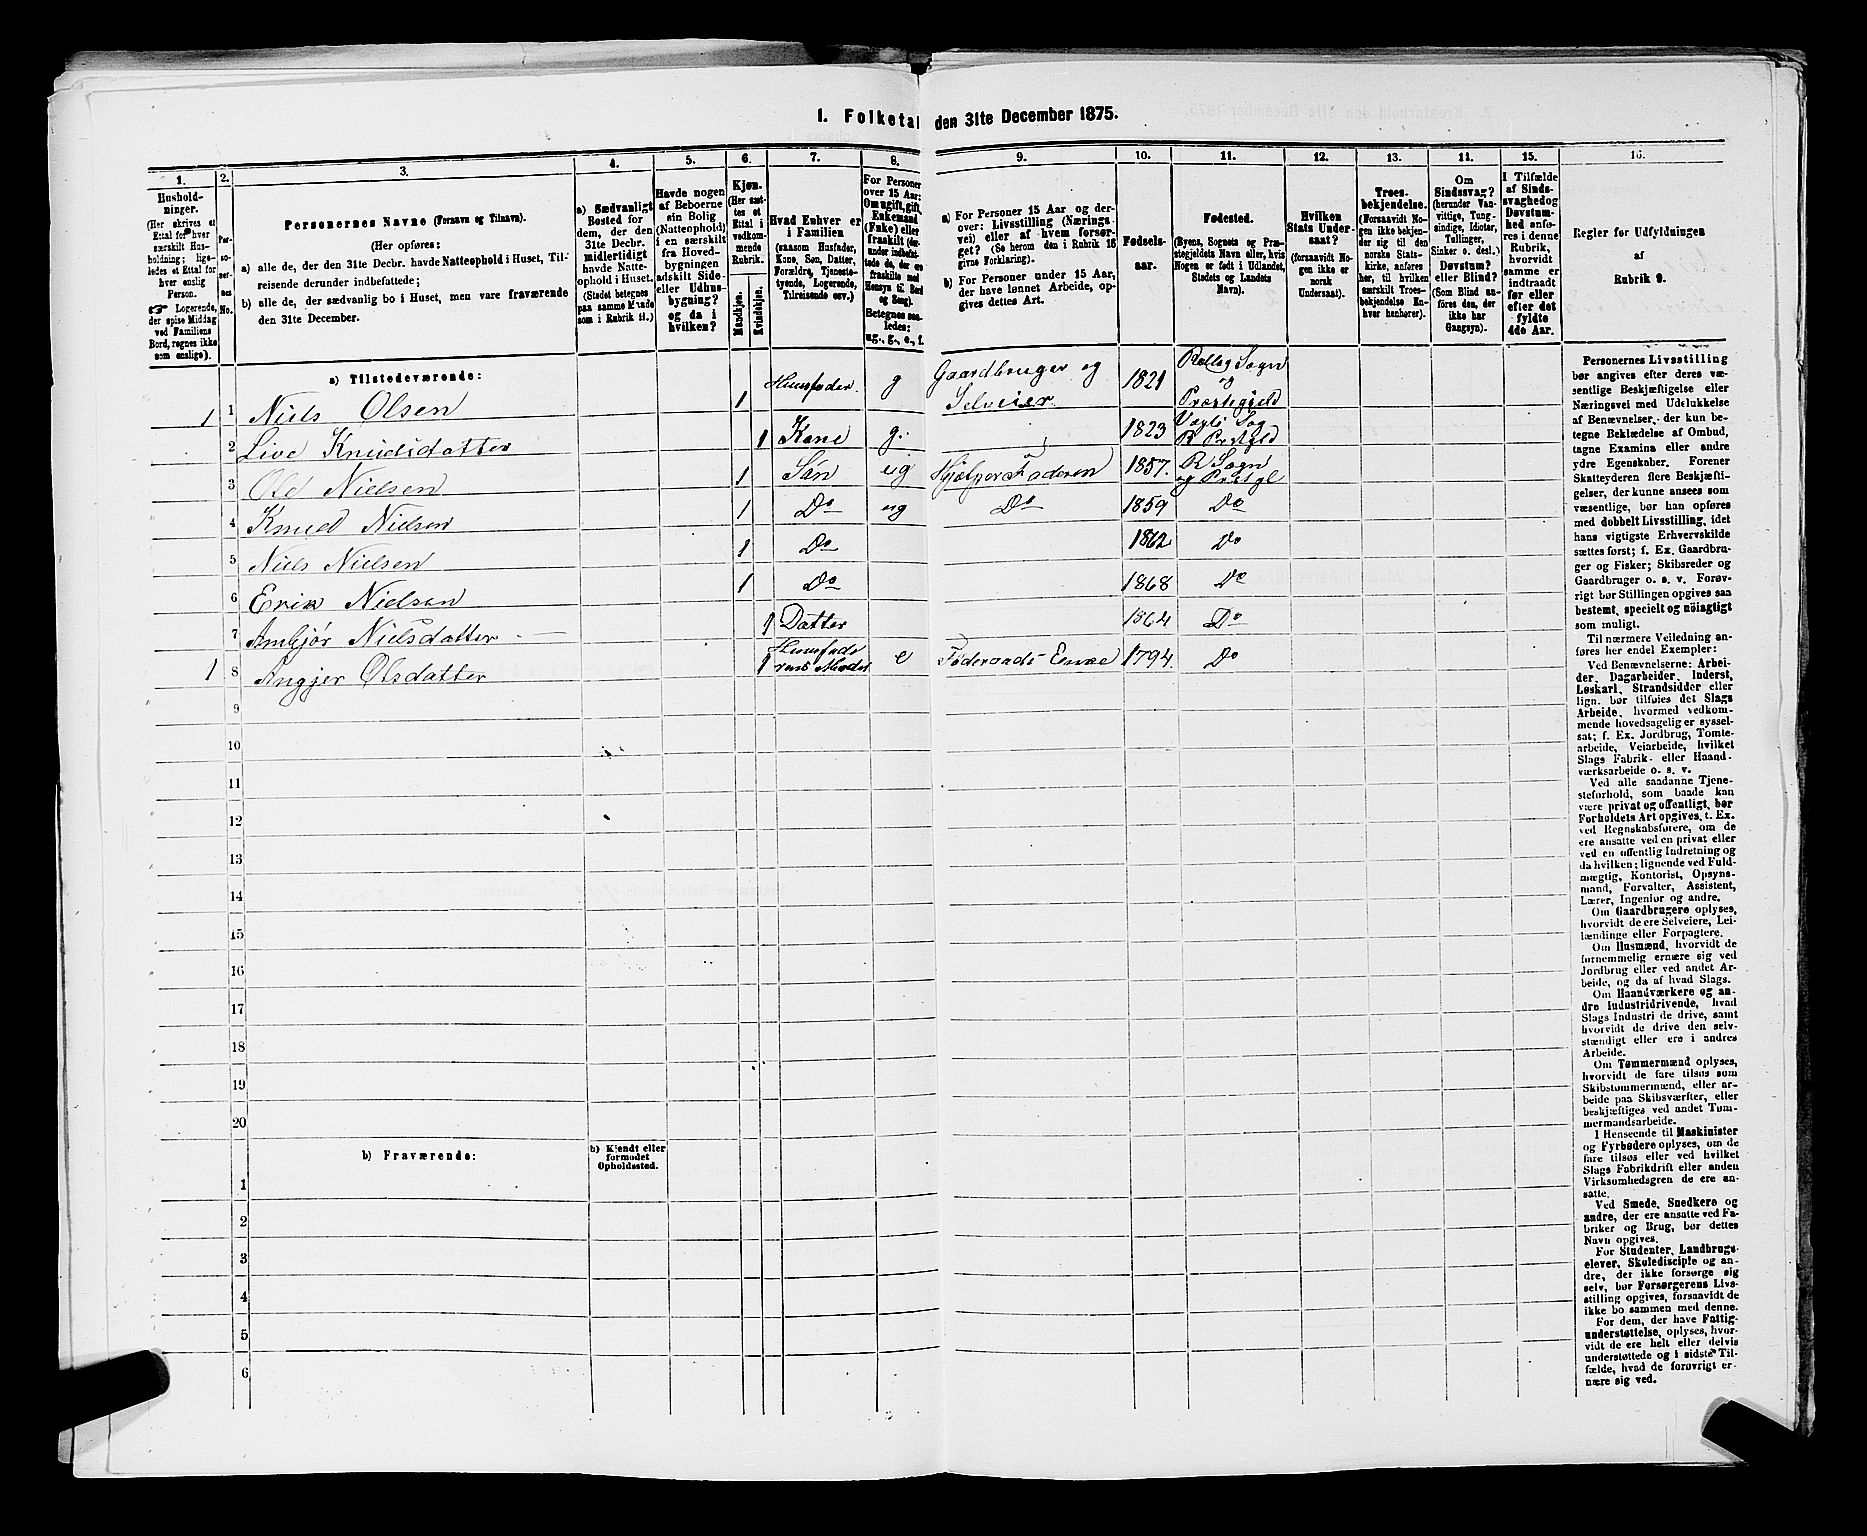 1. Folketal den 31te December 1875.
1.
2.
3.
4.
5.
6.
7.
8.
9.
10.
11.
12.
13.
14.
15.
16.
Husholdninger.
(Her skrives et
Ettal for hver
særskilt Husholdning;
ligeledes et Ettal for
hver enslig
Person.
☞ Logerende,
der spise Middag
ved Familiens
Bord, regnes ikke
som enslige).
Personernes No.
Personernes Navne (Fornavn og Tilnavn).
(Her opføres:
a) alle de, der den 31te Decbr. havde Natteophold i Huset, Tilreisende
derunder indbefattede;
b) alle de, der sædvanlig bo i Huset, men vare fraværende
den 31te December.
a) Sædvanligt
Bosted for
dem, der den
31te Decbr.
midlertidigt
havde Natteophold
i Huset.
(Stedet betegnes
paa samme Maade
som i Rubrik 11.)
Havde nogen
af Beboerne
sin Bolig
(Natteophold)
i en særskilt
fra Hovedbygningen
adskilt Side-
eller Udhusbygning?
og da i
hvilken?
Kjøn.
(Her sættes
et
Ettal i
vedkommende
Rubrik.
Mandkjøn.
Kvindekjøn.
Hvad Enhver er
i Familien
(saasom Husfader,
Kone, Søn, Datter,
Forældre, Tjenestetyende,
Logerende,
Tilreisende osv.)
For Personer
over 15 Aar:
Om ugift, gift,
Enkemand
(Enke) eller
fraskilt (derunder
indbefattede
de, der ere
fraskilte med
Hensyn til Bord
og Seng).
Betegnes saaledes:
ug., g., e., f.
a) For Personer 15 Aar og derover:
Livsstilling (Næringsvei)
eller af hvem forsørget?
(Se herom den i Rubrik 16
givne Forklaring).
b) For Personer under 15 Aar,
der have lønnet Arbeide, opgives
dettes Art.
Fødselsaar.
Fødested.
(Byens, Sognets og Præstegjeldets
Navn eller, hvis
Nogen er født i Udlandet,
Stedets og Landets
Navn).
Hvilken
Stats Undersaat?
(forsaavidt Nogen
ikke er
norsk
Undersaat).
Troesbekjendelse.
(Forsaavidt Nogen
ikke bekjender
sig til den
norske Statskirke,
anføres
her, til hvilken
særskilt Troesbekjendelse
Enhver
henhører).
Om
Sindssvag?
(herunder Vanvittige,
Tungsindige,
Idioter,
Tullinger,
Sinker o. desl.)
Døvstum?
eller Blind?
(Som Blind anføres
den, der
ikke har
Gangsyn).
I Tilfælde
af Sindssvaghed
og
Døvstumhed
anføres
i denne
Rubrik,
hvorvidt
samme er
indtraadt
før eller
efter det
fyldte
4de Aar.
Regler for Udfyldningen
af
Rubrik 9.
a) Tilstedeværende:
1 1 Niels Olsen 1 Huusfader g Gaardbruger og Selveier 1821 Rollag Sogn og Præstegjeld
2 Live Knudsdatter 1 Kone g. 1823 R Prstgjld
3 Ole Nielsen 1 Søn ug Hjælper Faderen 1857. R Sogn og Prstgl
4 Knud Nielsen 1 Do ug Do 1859 Do
5 Niels Nielsen 1 Do 1862 Do
6 Erik Nielsen 1 Do 1868 Do
7 Ambjør Nielsdatter 1 Datter 1864 Do
1 8 Angjer Olsdatter 1 Huusfaderens Moder e Føderaads Enke 1794. Do
9
10
11
12
13
14
15
16
17
18
19
20
b) Fraværende:
b) Kjendt eller
formodet
Opholdssted.
1
2
3
4
5
6
Personernes Livsstilling
bør angives efter deres væsentlige
Beskjæftigelse eller
Næringsvei med Udelukkelse
af Benævnelser, der kun betegne
Beklædelse af Ombud,
tagne Examina eller andre
ydre Egenskaber. Forener
Skatteyderen flere Beskjæftigelser,
der kunne ansees som
væsentlige, bør han opføres
med dobbelt Livsstilling, idet
hans vigtigste Erhvervskilde
sættes først; f. Ex. Gaardbruger
og Fisker; Skibsreder og
Gaardbruger o. s. v. Forøvrigt
bør Stillingen opgives saa
bestemt, specielt og nöiagtigt
som muligt.
Til nærmere Veiledning anføres
her endel Exempler:
Ved Benævnelserne: Arbeider,
Dagarbeider, Inderst,
Løskarl, Strandsidder eller
lign. bør tilføies det Slags
Arbeide, hvormed vedkommende
hovedsagelig er sysselsat;
f. Ex. Jordbrug, Tomtearbeide,
Veiarbeide, hvilket
Slags Fabrik- eller Haandværksarbeide
o. s. v.
Ved alle saadanne Tjenesteforhold,
som baade kan
være privat og offentligt, bør
Forholdets Art opgives, t. Ex.
ved Regnskabsførere, om de
ere ansatte ved en privat eller
ved en offentlig Indretning og
da hvilken; lignende ved Fuldmægtig,
Kontorist, Opsynsmand,
Forvalter, Assistent,
Lærer, Ingeniør og andre.
Om Gaardbrugere oplyses,
hvorvidt de ere Selveiere, Leilændinge
eller Forpagtere.
Om Husmænd, hvorvidt de
fornemmelig ernære sig ved
Jordbrug eller ved andet Arbeide,
og da af hvad Slags.
Om Haandværkere og andre
Industridrivende, hvad
Slags Industri de drive, samt
hvorvidt de drive den selvstændigt
eller ere i andres
Arbeide.
Om Tømmermænd oplyses,
hvorvidt de fare tilsøs som
Skibstømmermænd, eller arbeide
paa Skibsværfter, eller
beskjæftiges ved andet Tømmermandsarbeide.
I Henseende til Maskinister
og Fyrbødere oplyses, om de
fare tilsøs eller ved hvilket
Slags Fabrikdrift eller anden
Virksomhedsgren de ere ansatte.
Ved Smede, Snedkere og
andre, der ere ansatte ved Fabriker
og Brug, bør dettes
Navn opgives.
For Studenter, Landbrugselever,
Skoledisciple og andre,
der ikke forsørge sig
selv, bør Forsørgerens Livsstilling
opgives, forsaavidt de
ikke bo sammen med denne.
For dem, der have Fattigunderstøttelse,
oplyses, hvorvidt
de ere helt eller delvis
understøttede og i sidste Tilfælde,
hvad de forøvrigt ernære
sig ved.